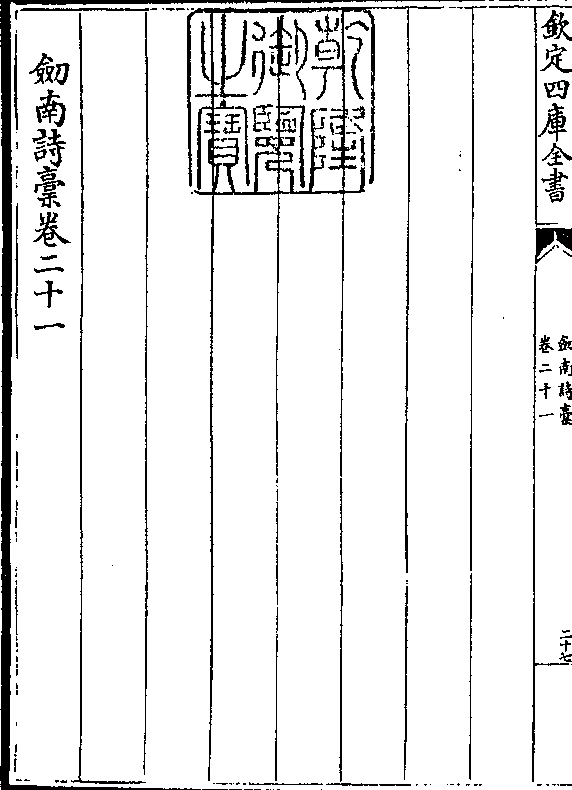 欽定四庫全書
劒南詩稾
卷二十一
二十七
乾隆
御覽
之寶
劒南詩稾卷二十一